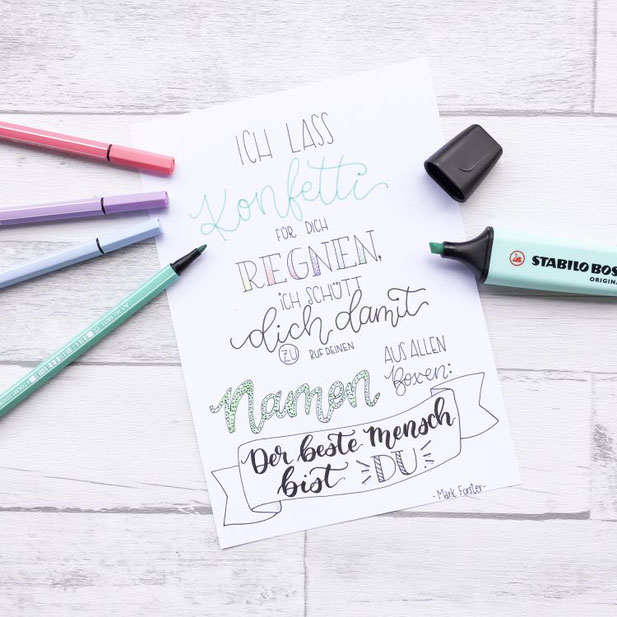 ICH LASS
Konfetti
FÜR DICH
REGNEN,
ICH SCHÜTT
dich damit
ZU RUF DEINEN
Namen AUS ALLEN
Boxen:
Der beste Mensch
bist DU.
- Mark Forster -
STABILO BOS
ORIGINA